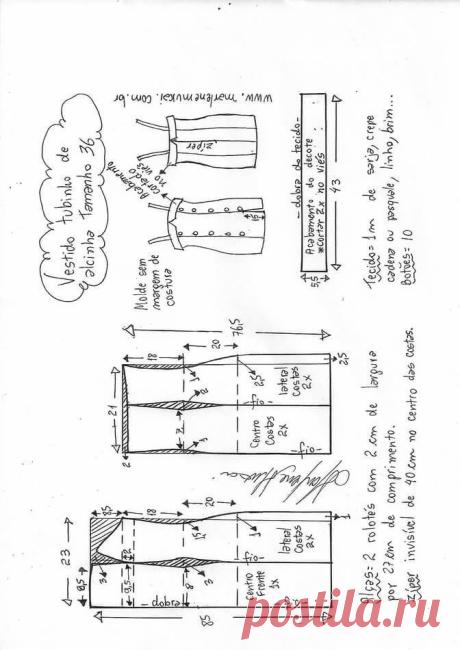 Vestido tubinho de
alcinha Tamanho 36
www.marlenemukai.com.br
Acabamento
cortado
no viés
zíper
15
Molde sem
margem de
costura
-dobra do tecido-
Acabamento do decote
cortar 2x no viés
5,5
43
Tecido= 1m de sarja, crepe
cadena ou pasquale, linho, brim...
Botões= 10
76,5
20
18
21
2
2
1
2,5
2,5
Centro
Costas
2x
lateral
Costas
2x
23
8,5
18
20
9,5
9,5
2
3
3
8
1,5
1
1
85
- dobra -
Centro
Frente
1x
lateral
Costas
2x
Alças= 2 rolotés com 2cm de largura
por 27cm de comprimento.
Zíper invisível de 40cm no centro das costas.
postila.ru